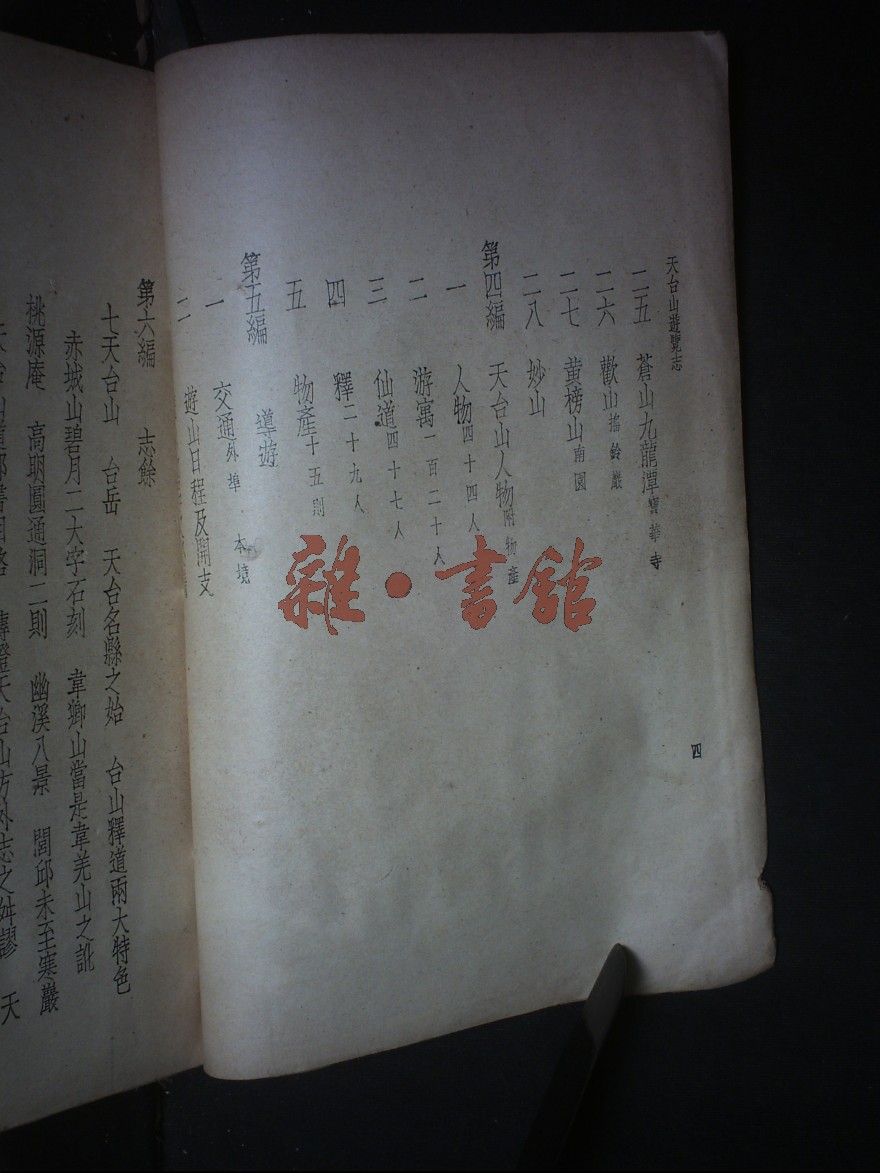 天台山遊覽志
二五 蒼山九龍潭寶華寺
二六 歡山搖鈴巖
二七 黃榜山南園
二八 妙山
第四編 天台山人物附物產
一 人物四十四人
二 游寓一百二十人
三 仙道四十七人
四 釋二十九人
五 物產十五則
第五編 導遊
一 交通外埠 本境
二 遊山日程及開支
四
第六編 志餘
七天台山 台岳 天台名縣之始 台山釋道兩大特色
赤城山碧月二大字石刻 韋鄉山當是韋羌山之訛
桃源庵 高明圓通洞二則 幽溪八景 閭邱未至寒巖
天台山方外志之舛謬 天
雜·書館